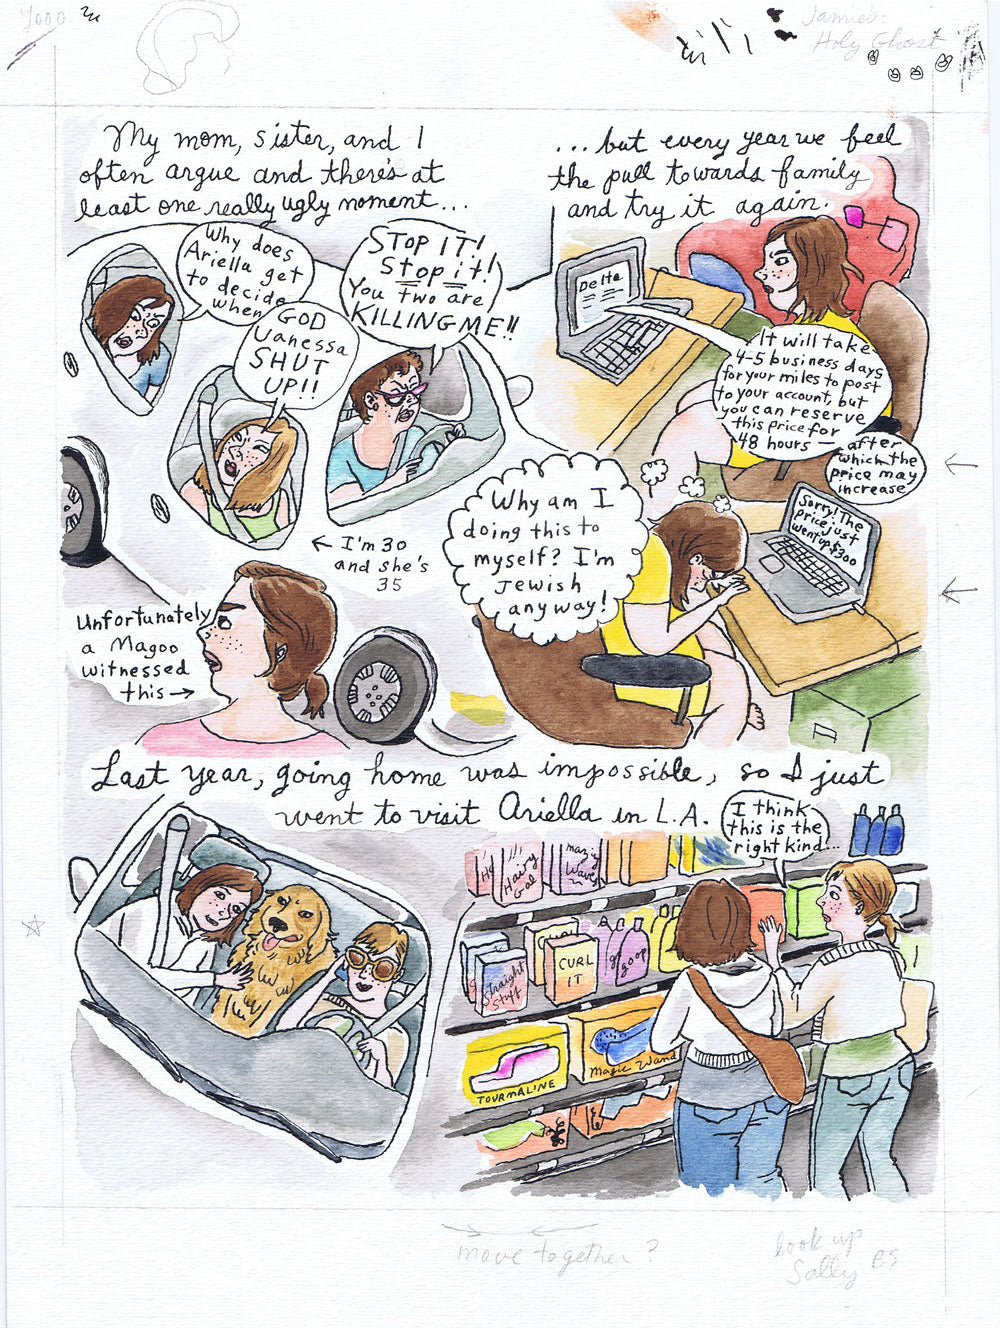 Jamie's:
Holy Ghost
My mom, sister, and I
often argue and there's at
least one really ugly moment...
Why does
Ariella get
to decide
when
GOD
Vanessa
SHUT
UP!!
STOP IT!
Stop it!
You two are
KILLING ME!!
← I'm 30
and she's
35
Unfortunately
a Magoo
witnessed
this →
...but every year we feel
the pull towards family
and try it again.
Delta
It will take
4-5 business days
for your miles to post
to your account, but
you can reserve
this price for
48 hours —
after
which the
price may
increase
Sorry! The
price just
went up $300
Why am I
doing this to
myself? I'm
Jewish
anyway!
Last year, going home was impossible, so I just
went to visit Ariella in L.A.
I think
this is the
right kind...
Hairy
Gal
Waves
Straight
Stuff
CURL
IT
goop
TOURMALINE
Magic Wand
move together?
look up
Sally BS